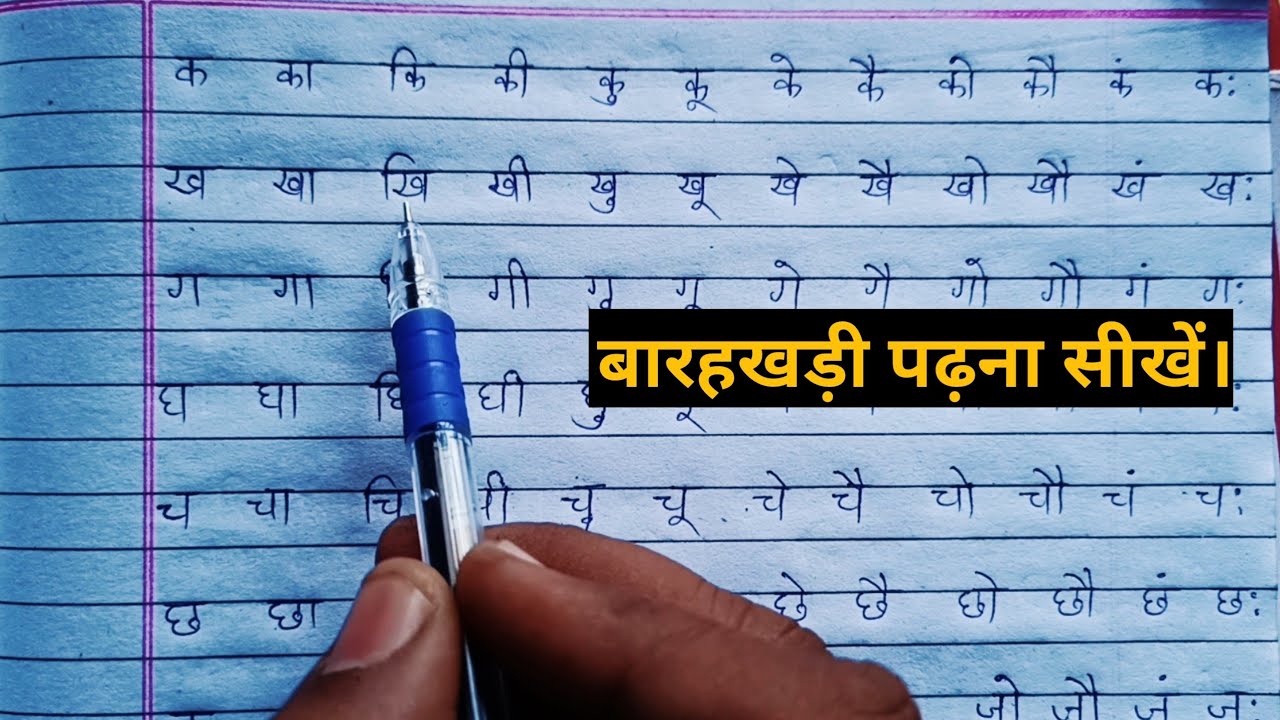 क का कि की कु कू के कै को कौ कं क:
ख खा खि खी खु खू खे खै खो खौ खं ख:
ग गा गी गु गू गे गै गो गौ गं ग:
बारहखड़ी पढ़ना सीखें।
घ घा घि घी घु
च चा चि ची चु चू चे चै चो चौ चं च:
छ छा छे छै छो छौ छं छ:
जो जौ जं ज: